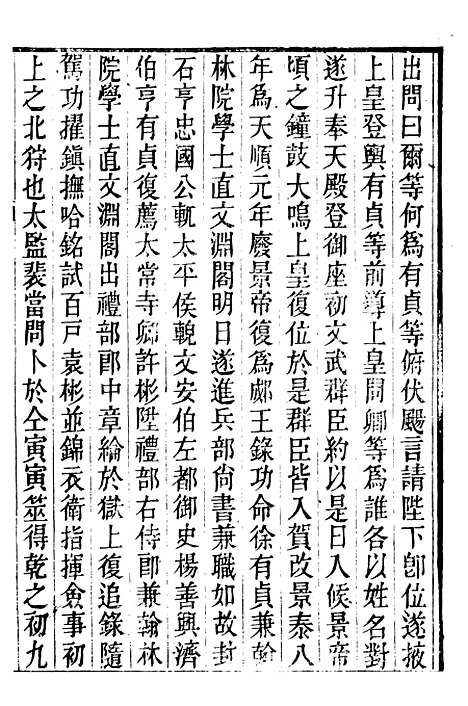 出問曰爾等何爲有貞等俯伏颺言請陛下卽位遂掖
上皇登輿有貞等前導上皇問卿等爲誰各以姓名對
遂升奉天殿登御座初文武群臣約以是日入候景帝
頃之鐘鼓大鳴上皇復位於是群臣皆入賀改景泰八
年爲天順元年廢景帝復爲郕王錄功命徐有貞兼翰
林院學士直文淵閣明日遂進兵部尚書兼職如故封
石亨忠國公軏太平侯輗文安伯左都御史楊善興濟
伯亨有貞復薦太常寺卿許彬陞禮部右侍郎兼翰林
院學士直文淵閣出禮部郎中章綸於獄上復追錄隨
駕功擢鎭撫哈銘試百戸袁彬並錦衣衛指揮僉事初
上之北狩也太監裴當問卜於仝寅寅筮得乾之初九